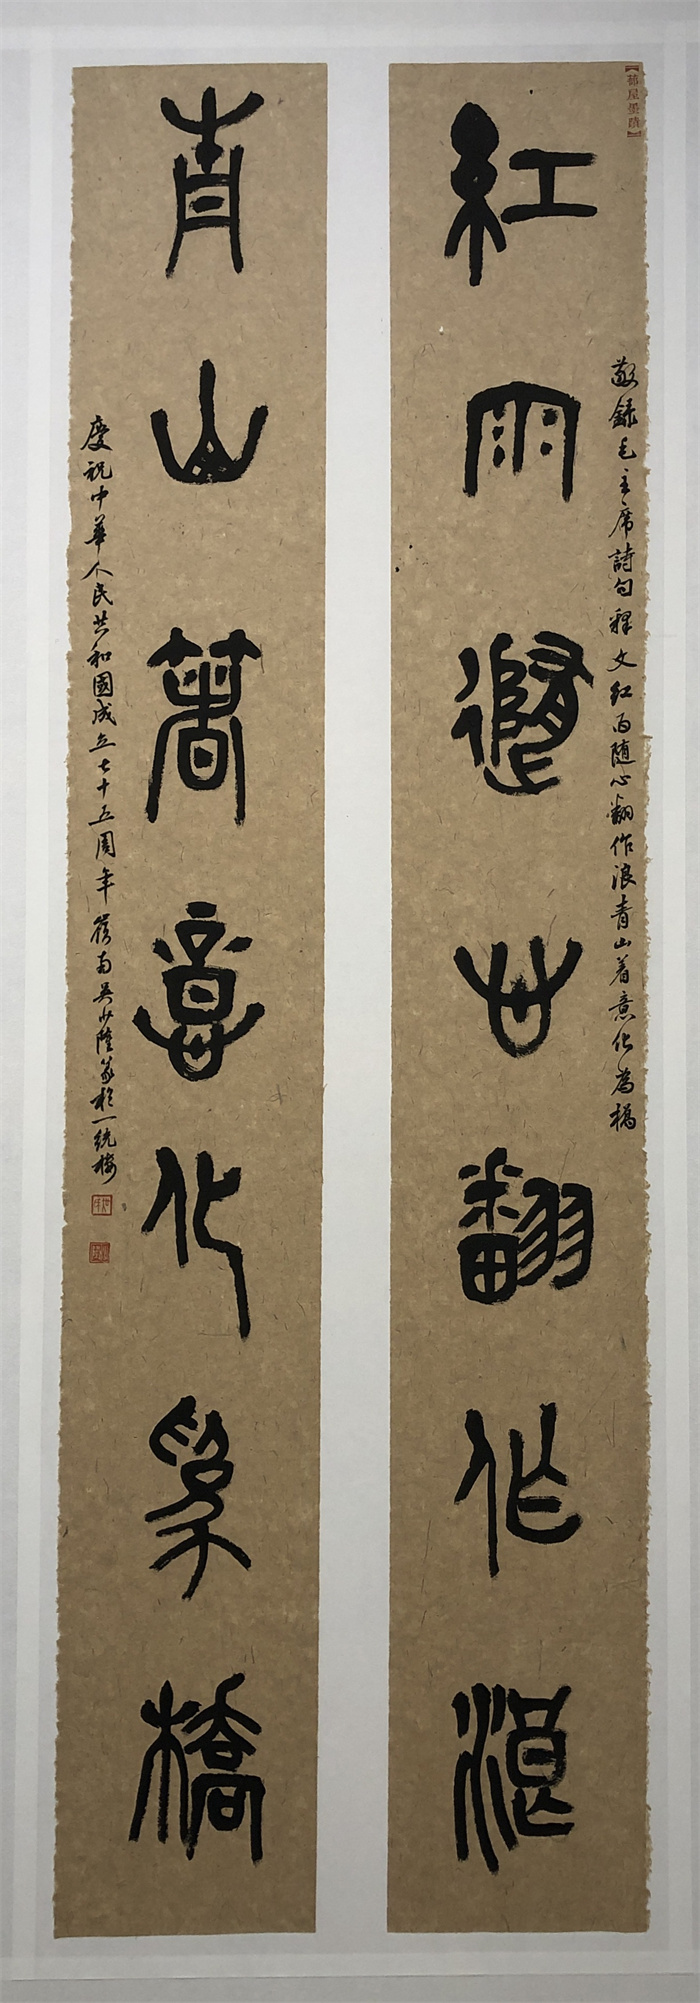 敬録毛主席詩句釋文紅雨随心翻作浪青山着意化為橋
紅雨隨心翻作浪
青山著意化為橋
慶祝中華人民共和國成立七十五周年嶺南吳少篆於一統楼